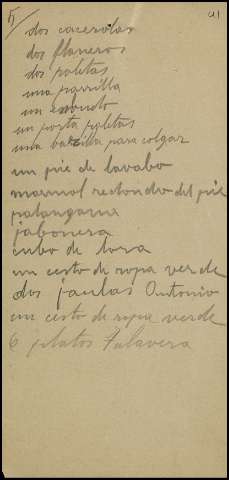 5/ 41
dos cacerolas
dos flaneros
dos paletas
una parrilla
un embudo
un porta paletas
una barilla para colgar
un pie de lavabo
marmol redondo del pie
palangana
jabonera
cubo de loza
un cesto de ropa verde
dos jaulas Antonio
un cesto de ropa verde
6 platos Talavera